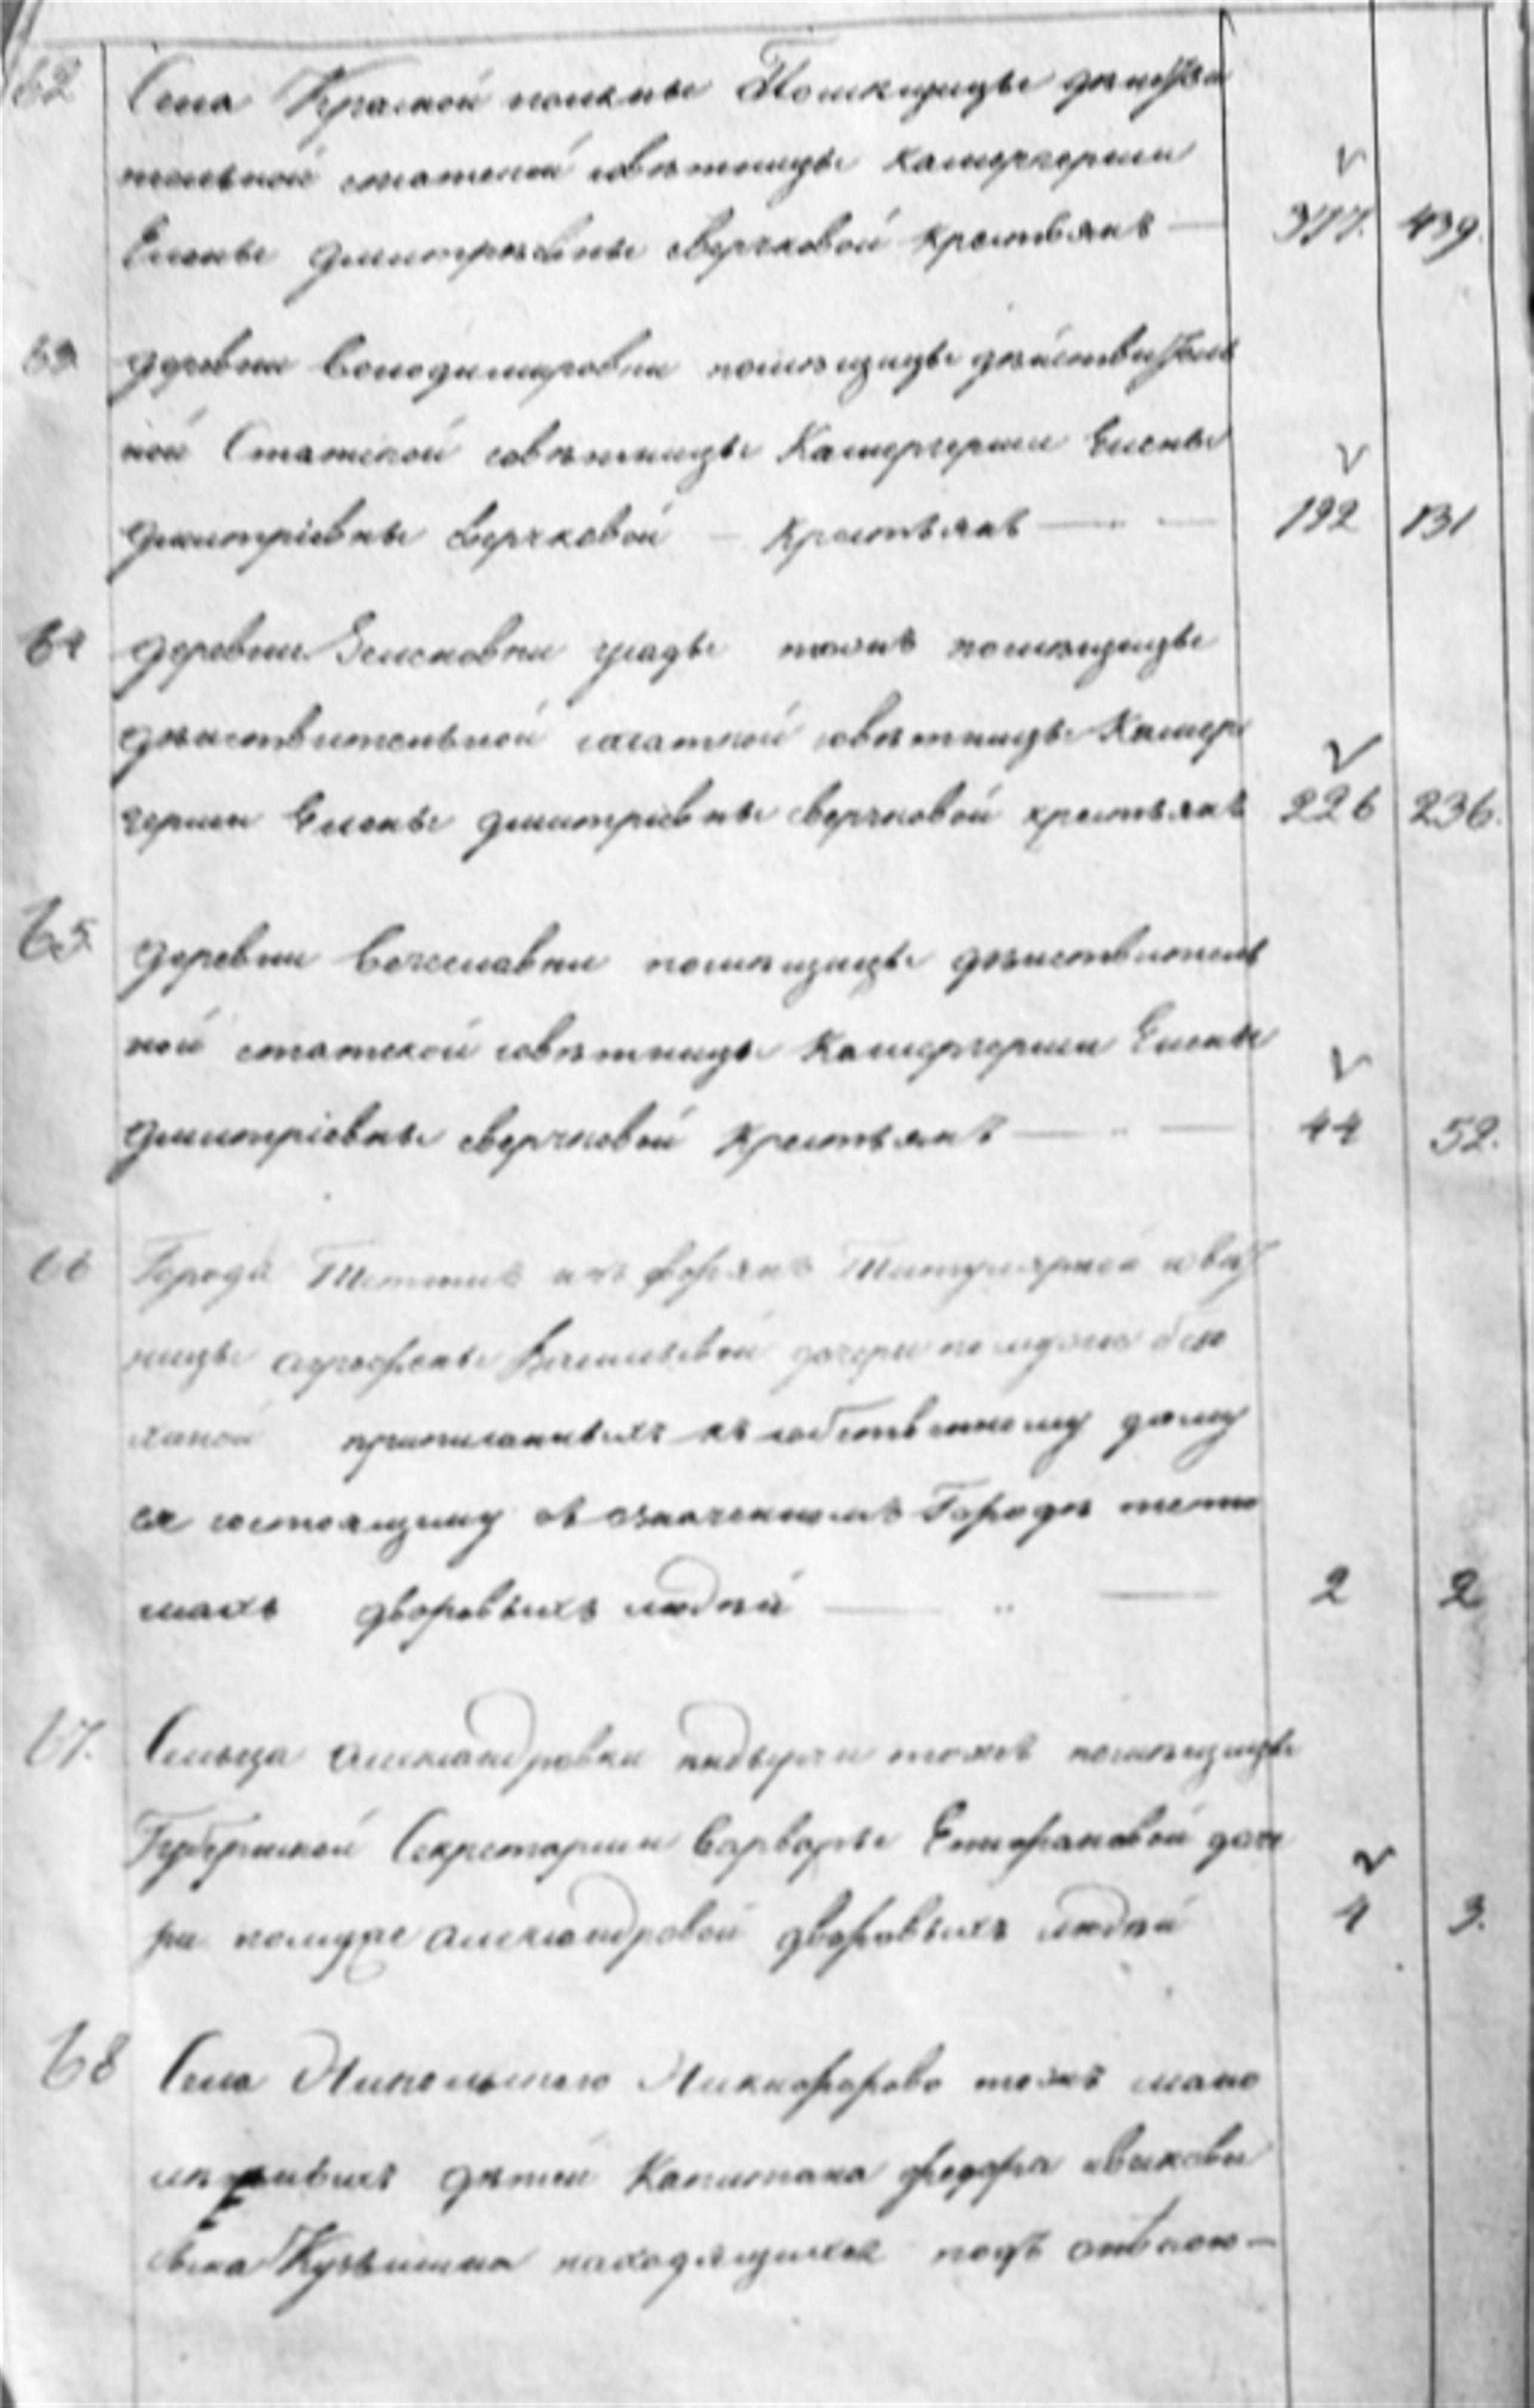 62 Села Красной поляны Помещицы действи
тельной статской советницы камергерши
Елены Дмитревны Сверчковой крестьянъ — 377. 439.
63. деревни Володимировки помѣщицы дѣйствитель
ной Статской совѣтницы Камергерши Елены
Дмитріевны Сверчковой - Крестьянъ — 192 131
64 деревни тожъ помѣщицы
дѣйствительной статской совѣтницы Камер
герши Елены дмитріевны сверчковой крестьянъ 226 236.
65. деревни помѣщицы дѣйствитель
ной статской совѣтницы Камергерши Елены
дмитріевны сверчковой Крестьянъ — 44 52.
66 Города изъ дворянъ Титулярной совѣт
ницы Агрофены Васильевой дочери по мужѣ
приписанныхъ къ собственному дому
ея состоящему въ означенномъ Городѣ тетю
шахъ дворовыхъ людей — 2 2
67. Сельца Александровки тожъ помѣщицы
Губернской Секретарши Варвары Епифановой доче
ри по мужѣ Александровой дворовыхъ людей 4 3.
68 Села Никольского Никифорово тожъ мало
лѣтныхъ дѣтей Капитана федора
сына находящихся подъ